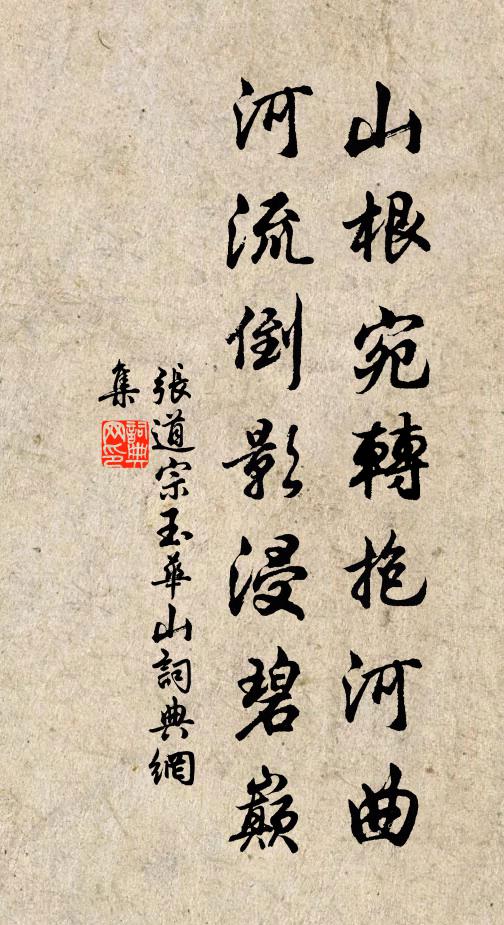 山根宛轉抱河曲
河流倒影浸碧巔
張道宗玉華山詞典網
集
詞典
网印